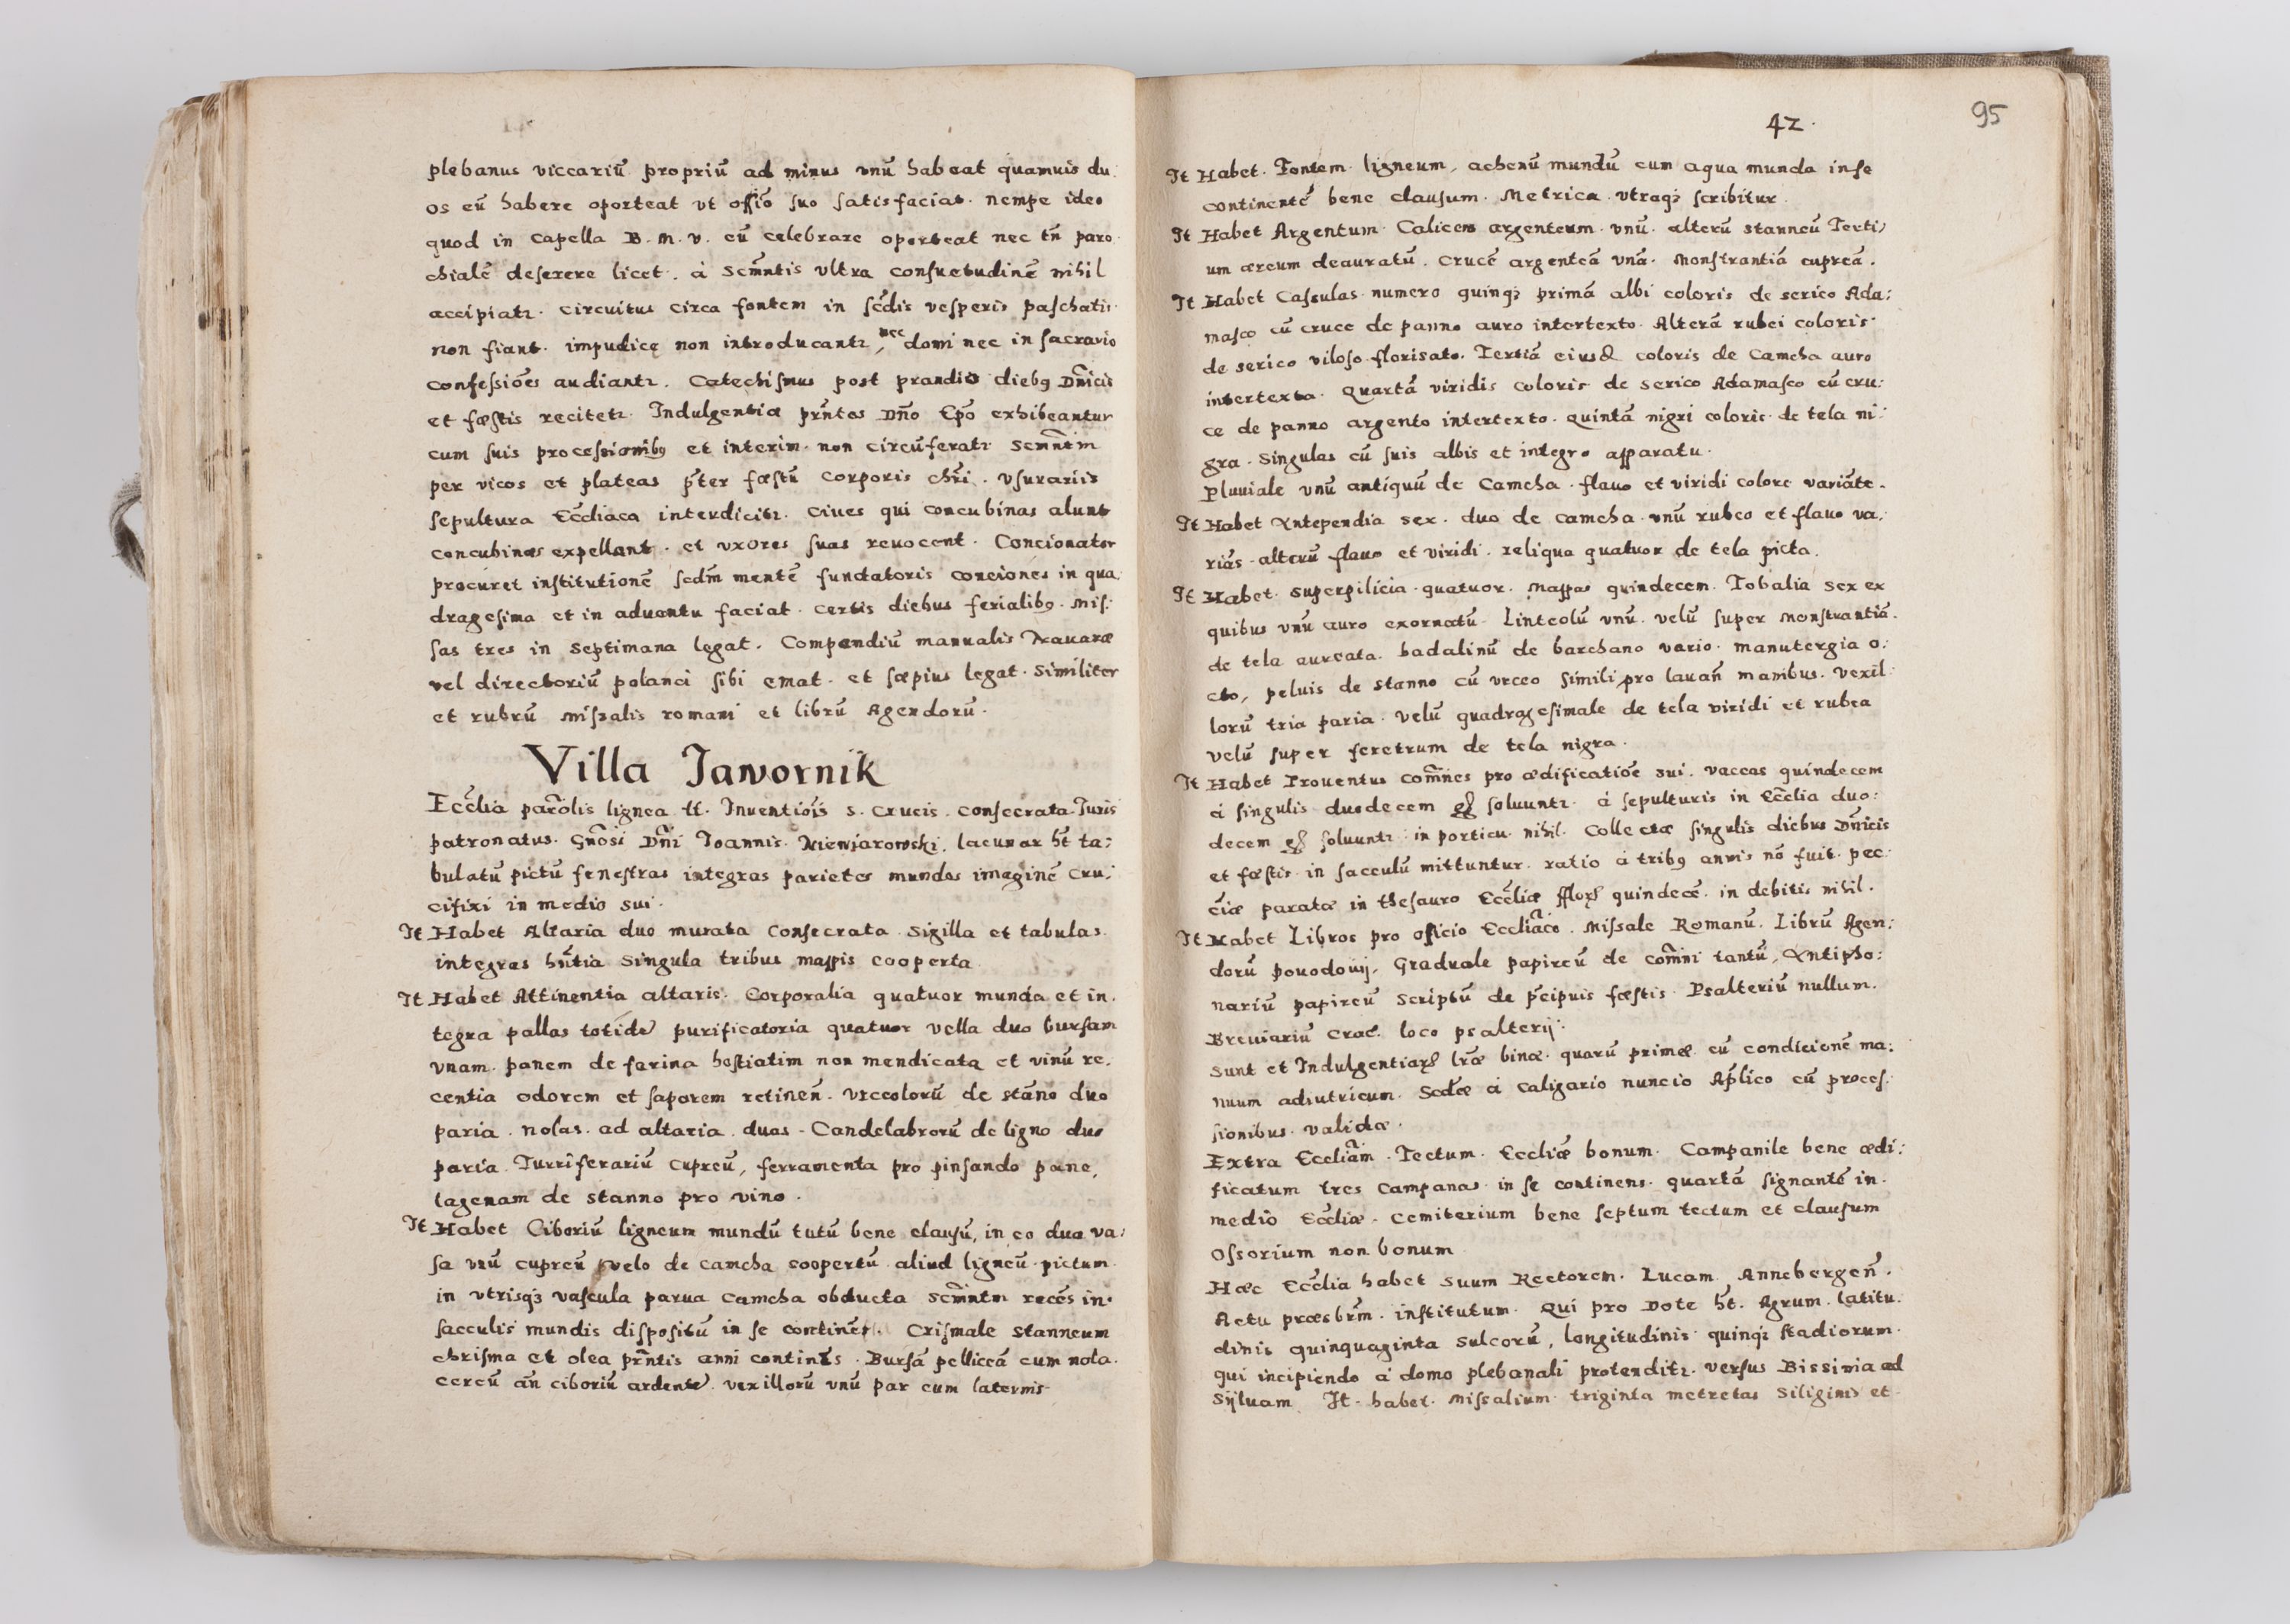 plebanus viccariū propriū ad minus vnū habeat quamuis du:
os eū habere oporteat vt offiō suo satisfaciat. nempe ideo
quod in capella B. M. V. eū celebrare oporteat nec tn̄ paro
chialē deserere licet. à scm̄ntis vltra consuetudinē nihil
accipiatr. Circuitus circa fontem in scdis vesperis paschatis
non fiant. impudicę non introducantr, nec domi nec in sacrario
confessiōes audiantr. Catechismus post prandiū diebq Dnīcis
et fæstis recitetr. Indulgentiæ prn̄tes Dn̄o Epō exhibeantur
cum suis processionibq et interim non circūferatr scmn̄tm
per vicos et plateas p̄ter fæstū Corporis chrī. vsurariis
sepultura Eccliaca interdicitr. Ciues qui concubinas alunt
concubinas expellant. et vxores suas reuocent. Concionator
procuret institutionē scdm̄ mentē fundatoris conciones in qua:
dragesima et in aduentu faciat. certis diebus ferialibq. Mis:
sas tres in septimana legat. Compendiū manualis Nauaræ
vel directoriū polanci sibi emat. et sæpius legat. Similiter
et rubrū missalis romani et librū Agendorū.
Villa Jawornik
Eccl̄ia paro̅lis lignea tt. Inuentiōis S. Crucis. consecrata Juris
patronatus. Gnōsi Dn̄i Joannis. Niewiarowski. lacunar ht̄ ta:
bulatū pictū fenestras integras parietes mundos imaginē Cru:
cifixi in medio sui.
It Habet Altaria duo murata Consecrata. Sigilla et tabulas
integras hn̄tia singula tribus mappis cooperta
It Habet Attinentia altaris. Corporalia quatuor munda et in.
tegra pallas totidē purificatoria quatuor vella duo bursam
vnam. panem de farina hostiatim non mendicata et vinū re.
centia odorem et saporem retinen̄. Vrceolorū de stāno duo
paria. nolas ad altaria duas. Candelabrorū de ligno duo
paria. Turriferariū cupreū, ferramenta pro pinsando pane,
lagenam de stanno pro vino.
It Habet Ciboriū ligneum mundū tutū bene clausū, in eo duo va:
sa vnū cupreū velo de camcha coopertū aliud ligneū pictum
in vtrisqꝫ vascula parua camcha obducta scmn̄tm recēs in
sacculis mundis dispositū in se continet. Crismale stanneum
chrisma et olea prn̄tis anni continēs. Bursā pelliceā cum nola.
cereū an̄ ciboriū ardentē. vexillorū vnū par cum laternis
42.
95
It Habet. Fontem ligneum, achenū mundū cum aqua munda in se
continentē bene clausum. Metrica vtraqꝫ scribitur.
It Habet Argentum. Calicem argenteum vnū. alterū stanneū Terti:
um æreum deauratū. crucē argenteā vnā. Monstrantiā cupreā.
It Habet Cassulas numero quinqꝫ primā albi coloris de serico Ada:
masco cū cruce de panno auro intertexto. Alterā rubei coloris
de serico viloso florisato. Tertiā eiusd coloris de Camcha auro
intertexta. Quartā viridis coloris de serico Adamasco cū cru:
ce de panno argento intertexto. Quintā nigri coloris de tela ni:
gra. Singulas cū suis albis et integro apparatu.
Pluuiale vnū antiquū de Camcha. flauo et viridi colore variāte.
It Habet Antependia sex. duo de camcha. vnū rubeo et flauo va:
riās. alterū flauo et viridi. reliqua quatuor de tela picta.
It Habet. superpilicia quatuor. Mappas quindecem. Tobalia sex ex
quibus vnū auro exornatū. Linteolū vnū. velū super Monstrantiā.
de tela aureata. badalinū de barchano vario. manutergia o:
cto, peluis de stanno cū vrceo simili, pro lauan̄ manibus. vexil
lorū tria paria. Velū quadragesimale de tela viridi et rubea
velū super feretrum de tela nigra.
It Habet Prouentus com̄nes pro ædificatiōe sui. Vaccas quindecem
à singulis duodecem gr̃ soluuntr. à sepulturis in Eccl̄ia duo:
decem gr̃ soluuntr: in porticu nihil. Collectæ singulis diebus Dn̄icis
et fæstis in sacculū mittuntur. ratio à tribq annis nō fuit. pec:
ciæ paratæ in thesauro Eccl̄iæ fflor̃ quindecē. in debitis nihil.
It Habet Libros pro officio Eccliācō. Missale Romanū. Librū Agen:
dorū pouodouij, Graduale papireū de com̄ni tantū, Antipho:
nariū papireū scriptū de p̄cipuis fæstis Psalteriū nullum.
Breuiariū Crac. loco psalterij.
Sunt et Indulgentiar̃ lr̄æ binæ. quarū primæ cū condicionē ma:
nuum adiutricum. Scdæ à Caligario nuncio Aplīco cū proces:
sionibus. validæ.
Extra Eccliām. Tectum Eccliæ bonum. Campanile bene ædi:
ficatum tres Campanas in se continens. quartā signantē in.
medio Eccl̄iæ. Cemiterium bene septum tectum et clausum
Ossorium non bonum
Hæc Eccl̄ia habet suum Rectorem. Lucam Annebergen̄.
Actu præsbrm̄. institutum. Qui pro Dote ht̄. Agrum. latitu.
dinis quinquaginta sulcorū, longitudinis quinqꝫ stadiorum.
qui incipiendo à domo plebanali protenditr. versus Bissinia ad
Syluam. It. habet. Missalium triginta metretas siliginis et